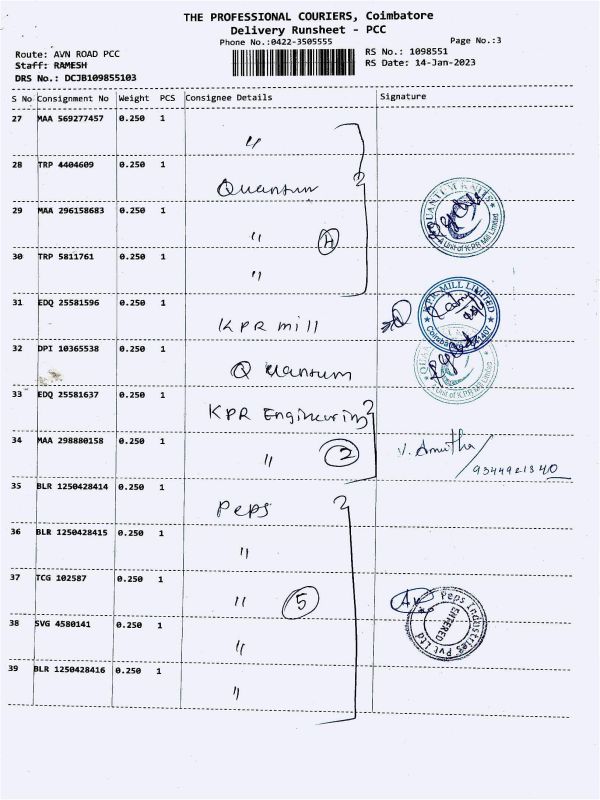 THE PROFESSIONAL COURIERS, Coimbatore
Delivery Runsheet - PCC
Phone No.:0422-3505555
Page No.:3
Route: AVN ROAD PCC
RS No.: 1098551
Staff: RAMESH
RS Date: 14-Jan-2023
DRS No.: DCJB109855103
S No Consignment No Weight PCS Consignee Details Signature
27 MAA 569277457 0.250 1 "
28 TRP 4404609 0.250 1 Quantum
29 MAA 296158683 0.250 1 " 4
30 TRP 5811761 0.250 1 "
31 EDQ 25581596 0.250 1 KPR mill
32 DPI 10365538 0.250 1 Quantum
33 EDQ 25581637 0.250 1 KPR Engineering
34 MAA 298880158 0.250 1 " 2 V. Amutha
35 BLR 1250428414 0.250 1 Peps
36 BLR 1250428415 0.250 1 "
37 TCG 102587 0.250 1 " 5
38 SVG 4580141 0.250 1 "
39 BLR 1250428416 0.250 1 "
QUANTUM KNITS
A Unit of KPR Mill Limited
K.P.R. MILL LIMITED
A Unit of K.P.R Mill Limited
Peps Industries Pvt Ltd
ENTERED